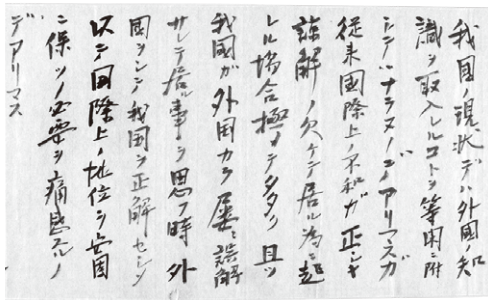 我国ノ現状デハ外國ノ知
識ヲ取入レルコトヲ等閑ニ附
シテハナラヌノデアリマスガ
従来国際上ノ不和ガ正シキ
諒解ノ欠ケテ居ル為ニ起
レル場合極メテ多ク且ツ
我國ガ外国カラ屡々誤解
サレテ居ル事ヲ思フ時外
国ヲシテ我国ヲ正解セシメ
以テ国際上ノ地位ヲ安固
ニ保ツノ必要ヲ痛感スルノ
デアリマス